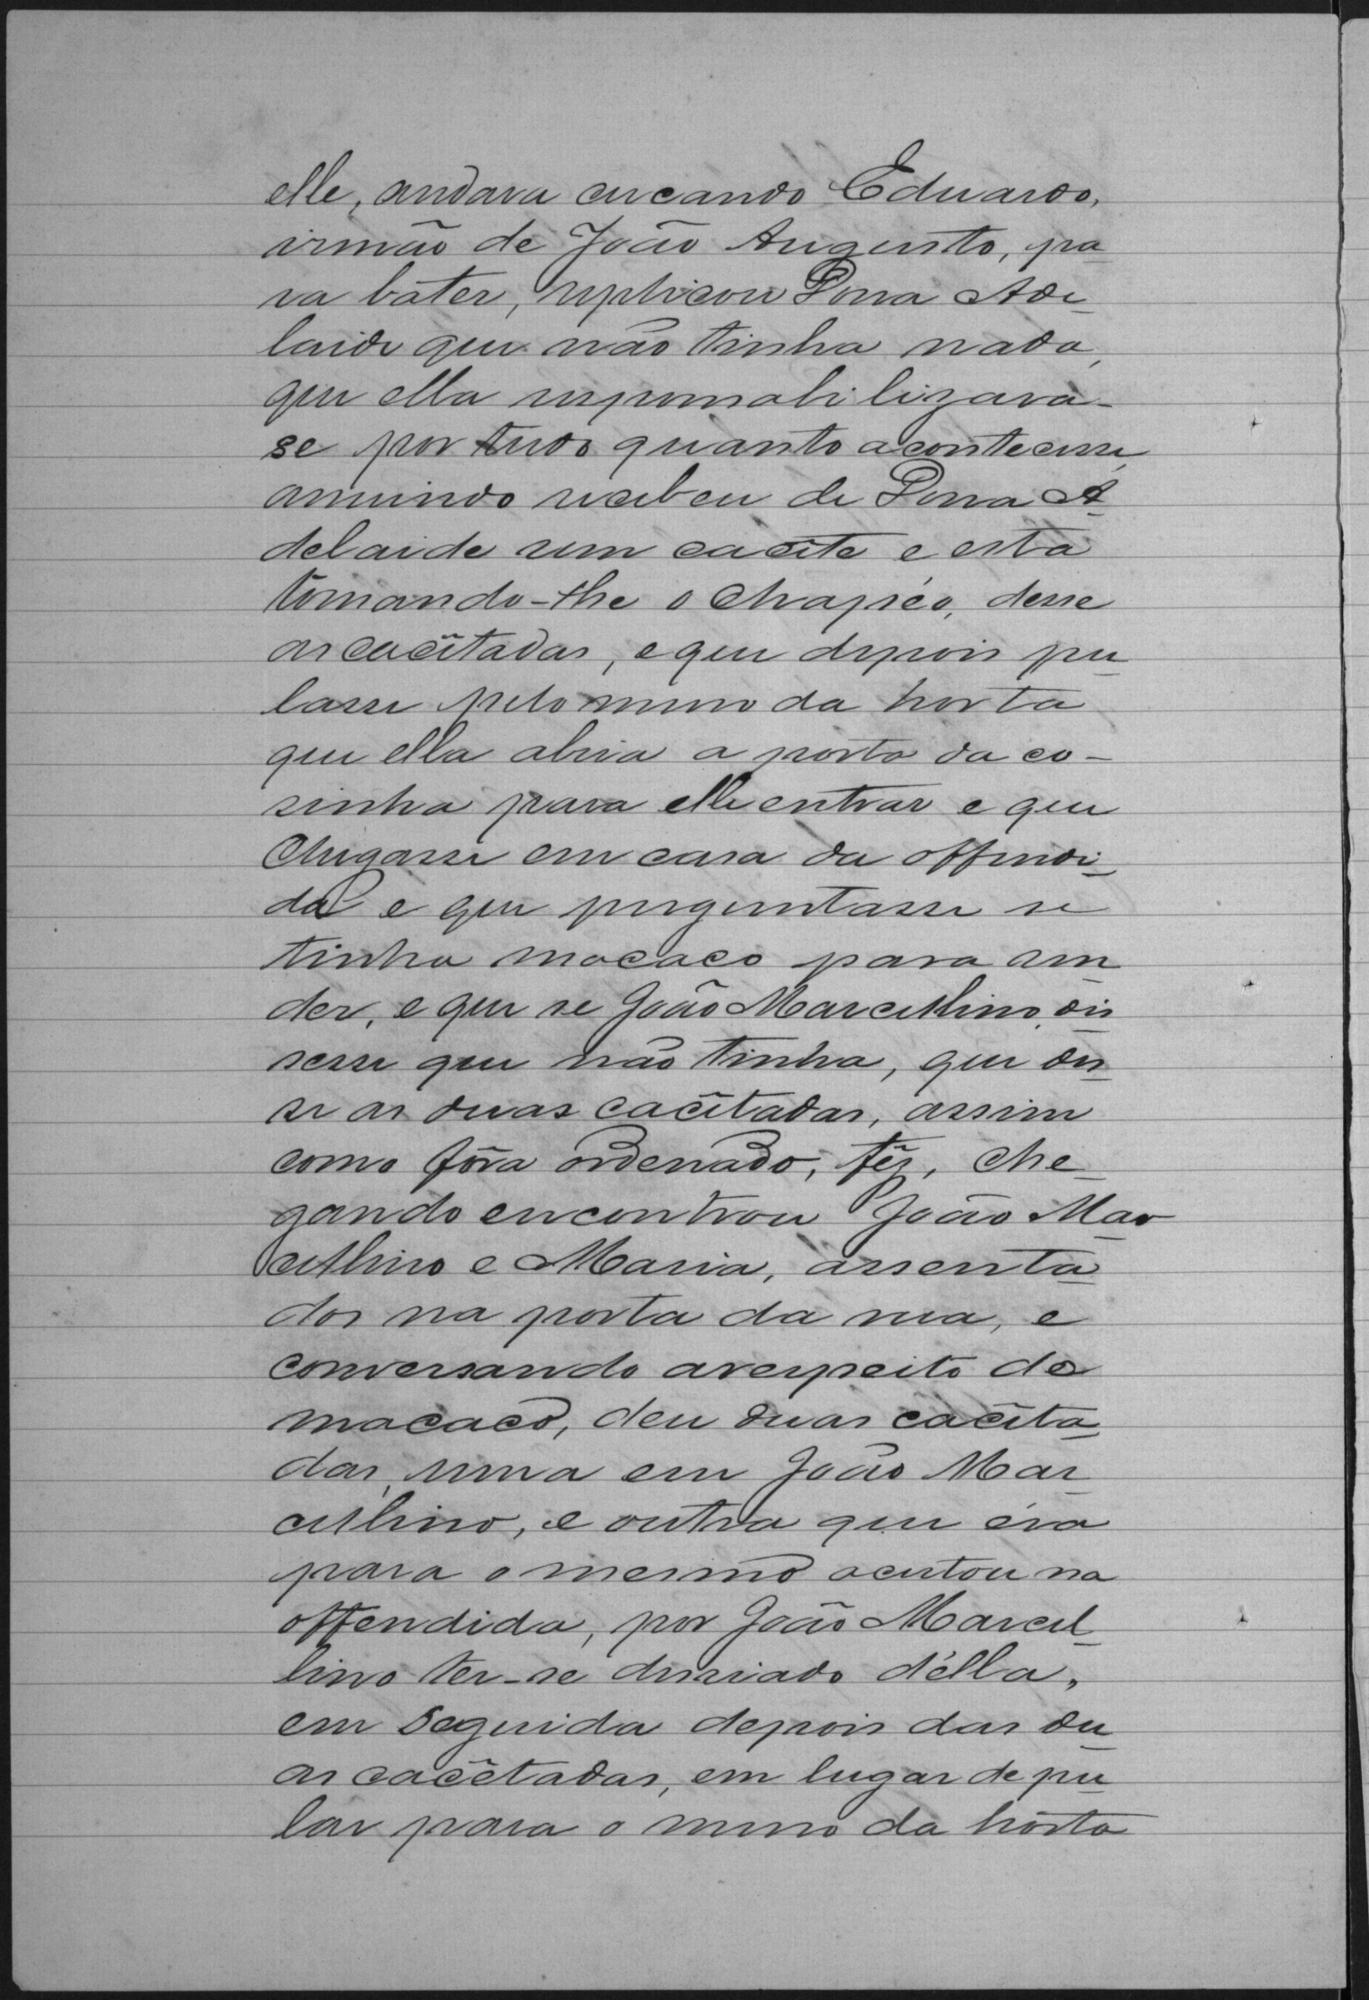 elle, andava cercando Eduardo,
irmão de João Augusto, pa
ra bater, replicou Dona Ade
laide que não tinha nada,
que ella responsabilizava-
se por tudo quanto acontecesse,
annuindo recebeu de Dona A
delaide um cacête e esta
tomando-lhe o chapéo, desse
as cacêtadas, e que depois pu
lasse pelo muro da horta
que ella abria a porta da co-
sinha para elle entrar e que
chegasse em casa da offendi
da e que perguntasse se
tinha macaco para ven
der, e que se João Marcellino dis
sesse que não tinha, que des
se as duas cacêtadas, assim
como fôra ordenado, fêz, che
gando encontrou João Mar
cellino e Maria, assenta
dos na porta da rua, e
conversando arespeito de
macaco, deu duas cacêta
das, uma em João Mar
cellino, e outra que éra
para o mesmo acertou na
offendida, por João Marcel
lino ter-se desviado délla,
em seguida depois das du
as cacêtadas, em lugar de pu
lar para o muro da hórta